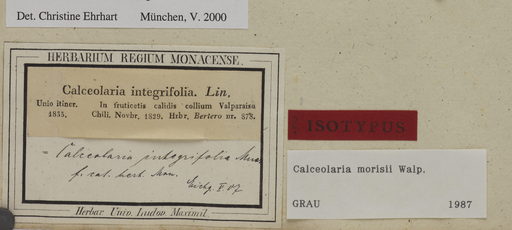 Det. Christine Ehrhart München, V. 2000
HERBARIUM REGIUM MONACENSE.
Calceolaria integrifolia. Lin.
Unio itiner. In fruticetis calidis collium Valparaiso
1835. Chili. Novbr. 1829. Hrbr. Bertero nr. 878.
= Calceolaria integrifolia Murr.
f. cat. herb. Mon.
Eichf. V 07
Herbar. Univ. Ludov. Maximil.
ISOTYPUS
Calceolaria morisii Walp.
GRAU 1987